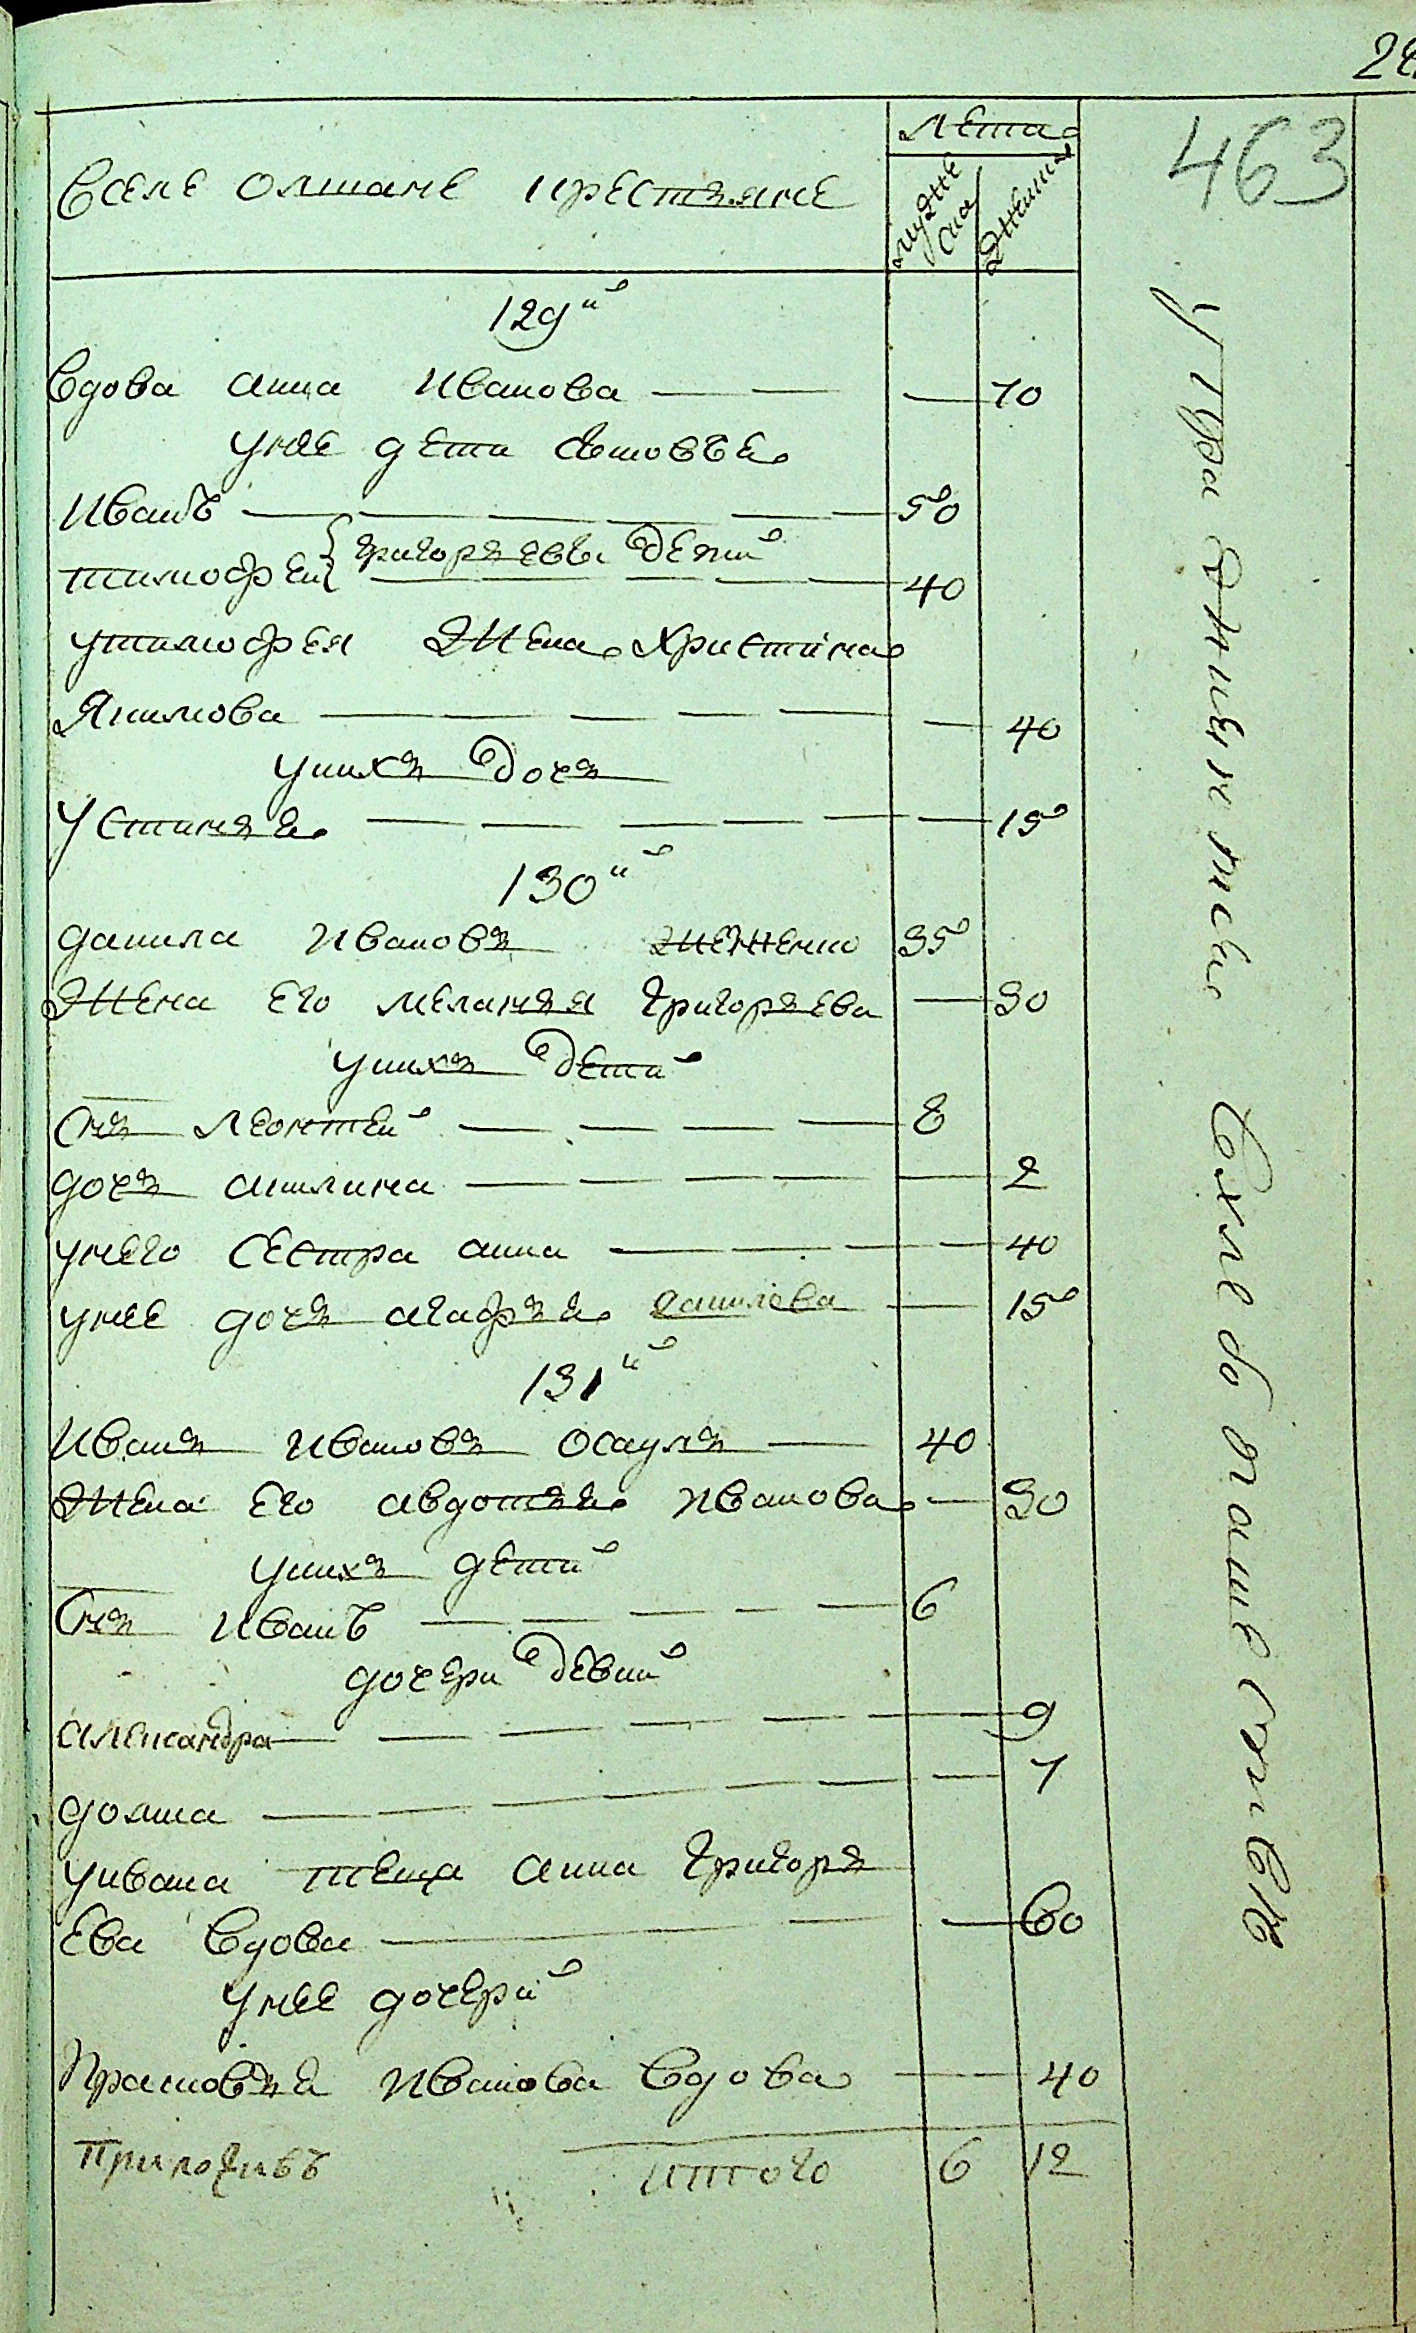 лета
Вселе Олшане крестьяне
мужеска
женска
463
129й
Вдова анна Иванова — — — 70
унее дети
Иванъ — — — 50
григорьевы дети
тимофей — — — 40
утимофея жена христина
Якимова — — — 40
унихъ дочь
Устинья — — — 15
130й
данила Ивановъ 35
жена его меланья григорьева — 30
унихъ дети
Снъ леонтей — — — 8
дочь акилина — — — 2
унего сестра анна — — — 40
унее дочь агафья данилова — 15
131й
Иванъ Ивановъ осауль — 40
жена его авдотья Иванова — 30
унихъ дети
Снъ Иванъ — — — 6
дочери девки
александра — — — 9
домна — — — 7
уивана теща анна григорь
ева вдова — — — 60
унее дочери
Прасковья Иванова вдова — 40
итого 6 12